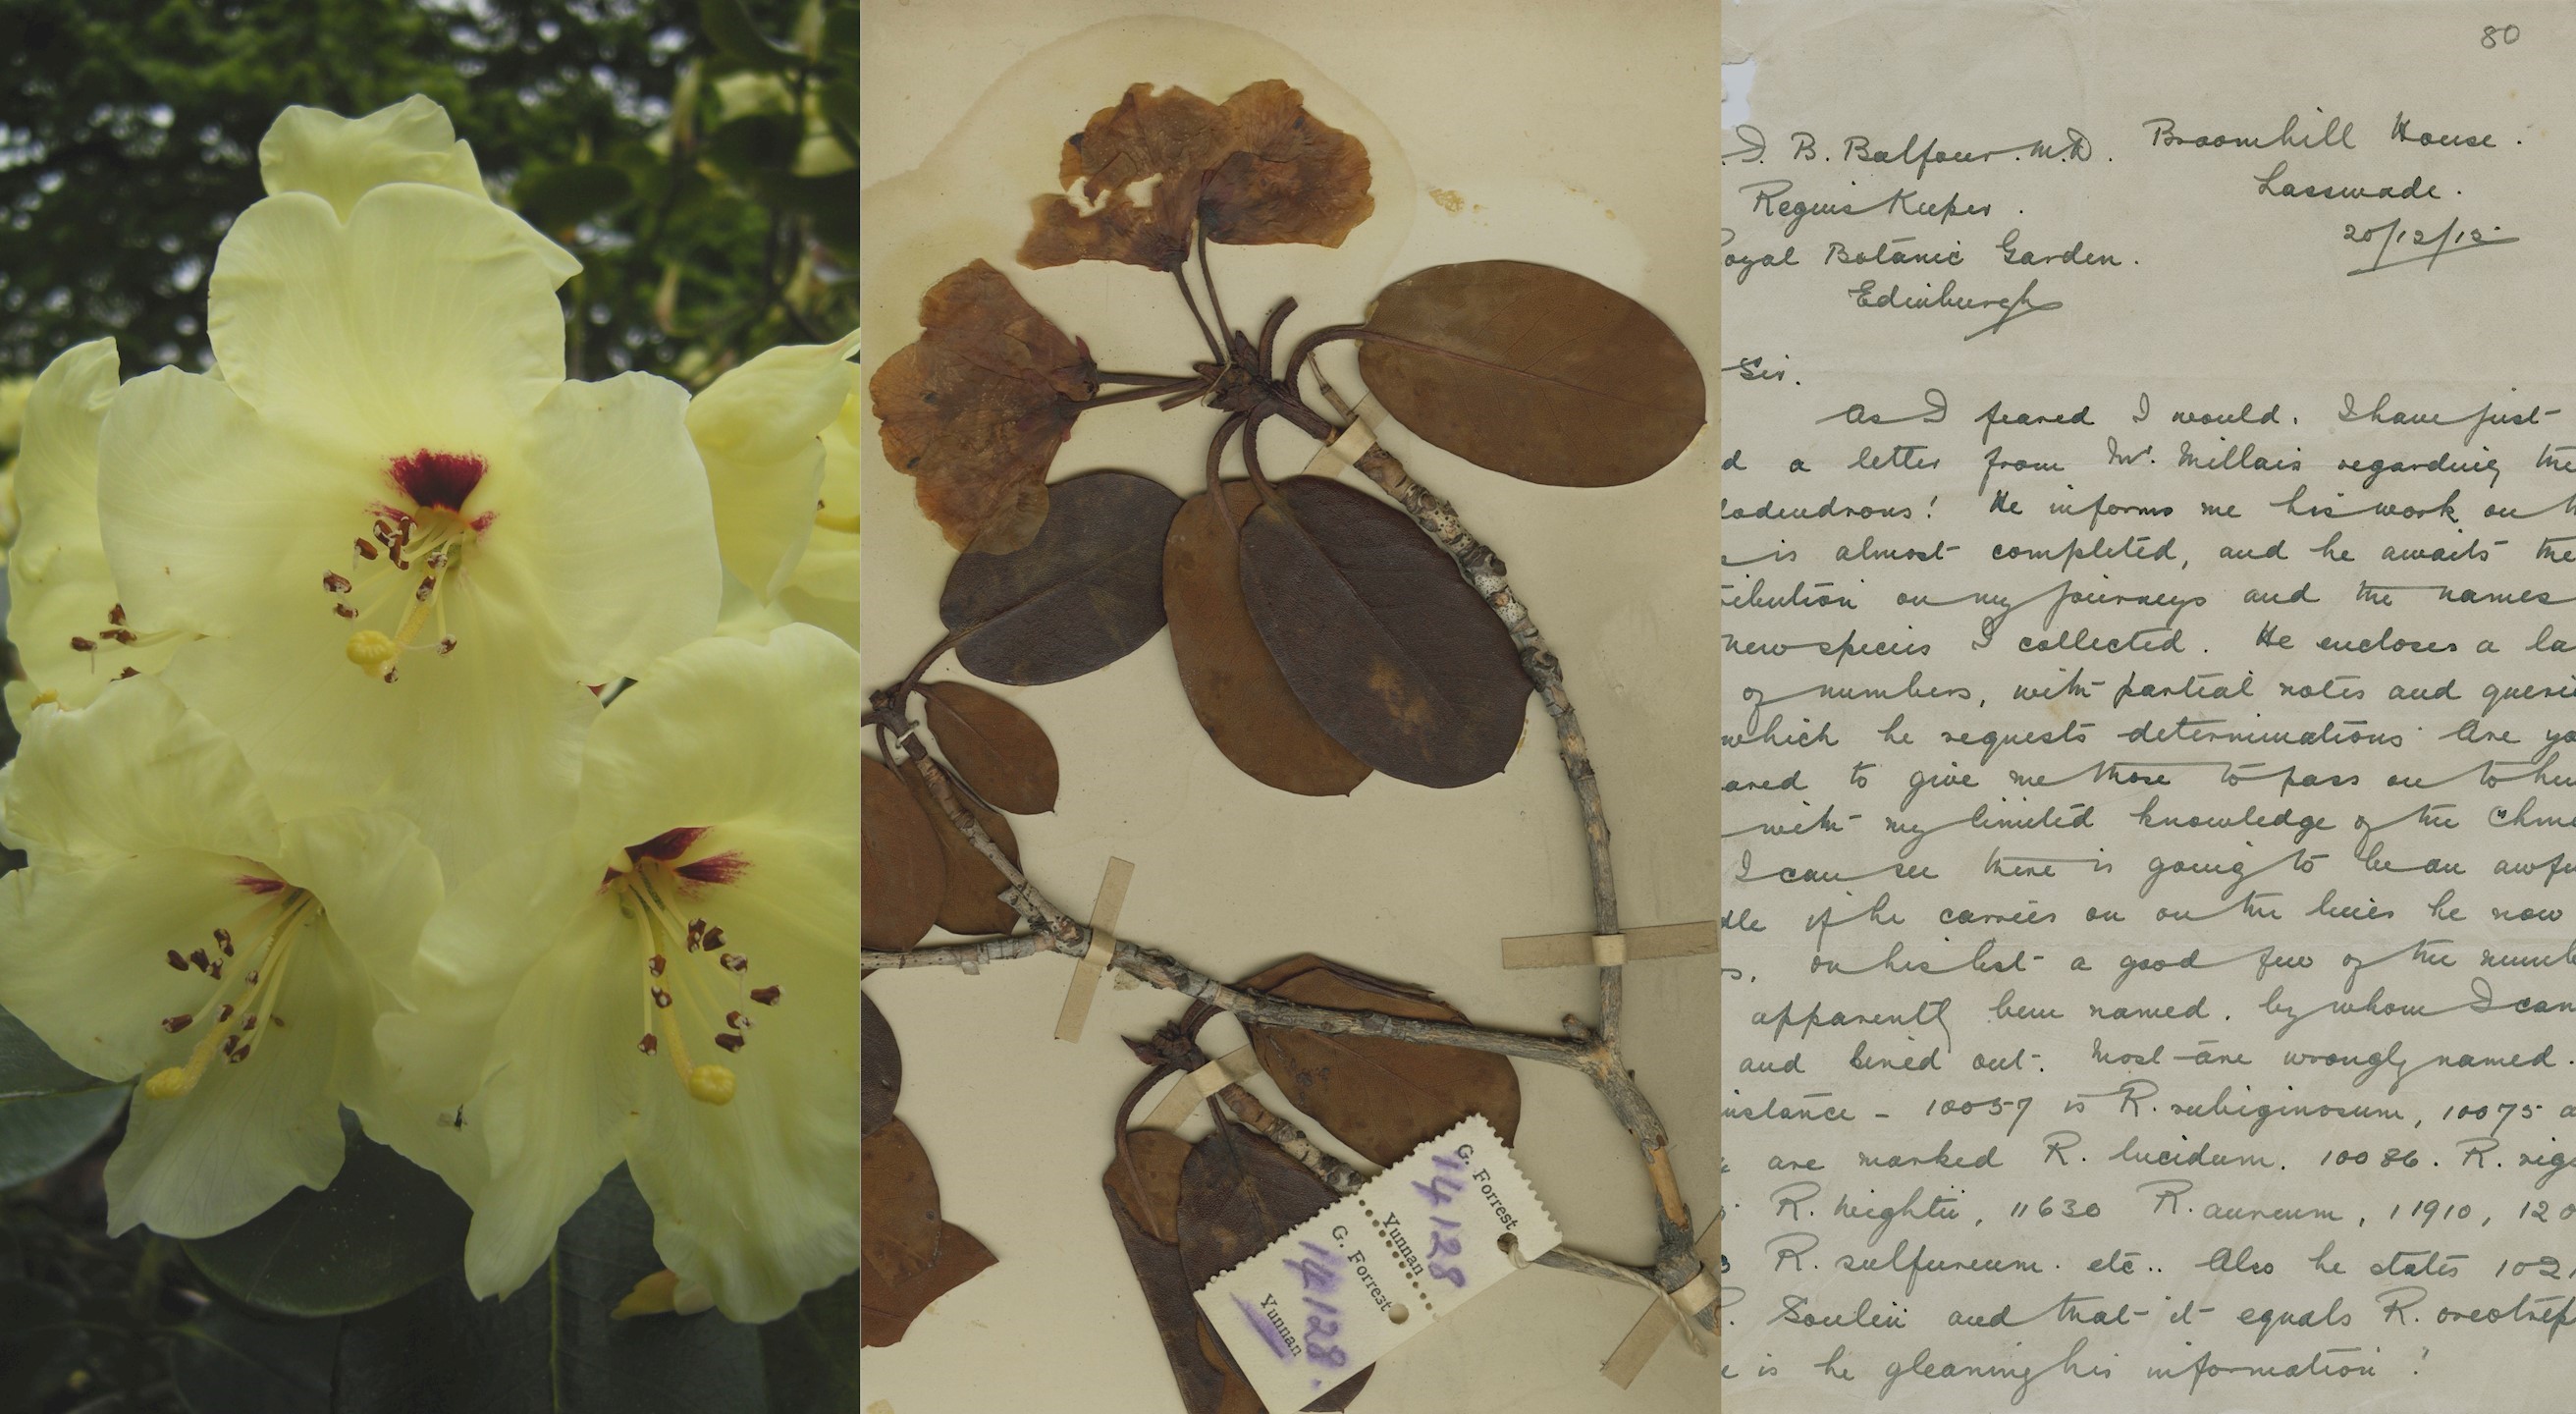 G. Forrest
14128
Yunnan
G. Forrest
14128.
Yunnan
80
I. B. Balfour. M.D. Broomhill House.
Lasswade.
Regius Keeper.
20/12/15
oyal Botanic Garden.
Edinburgh
Sir.
As I feared I would. I have just
d a letter from Mr. Millais regarding the
dodendrons! He informs me his work on
is almost completed, and he awaits the
ribution on my journeys and the names
new species I collected. He encloses a la
of numbers, with partial notes and queri
which he requests determinations. Are yo
ared to give me those to pass on to him
with my limited knowledge of the Chine
I can see there is going to be an awfu
dle if he carries on on the lines he now
s. On his list a good few of the numb
apparently been named, by whom I can
and lined out. Most are wrongly named.
instance - 10057 is R. rubiginosum, 10075 a
are marked R. lucidum. 10086. R. rig
R. Wightii, 11630 R. aureum, 11910, 120
R. sulfureum. etc.. Also he states 102
R. Souliei and that it equals R. oreotrep
e is he gleaning his information?